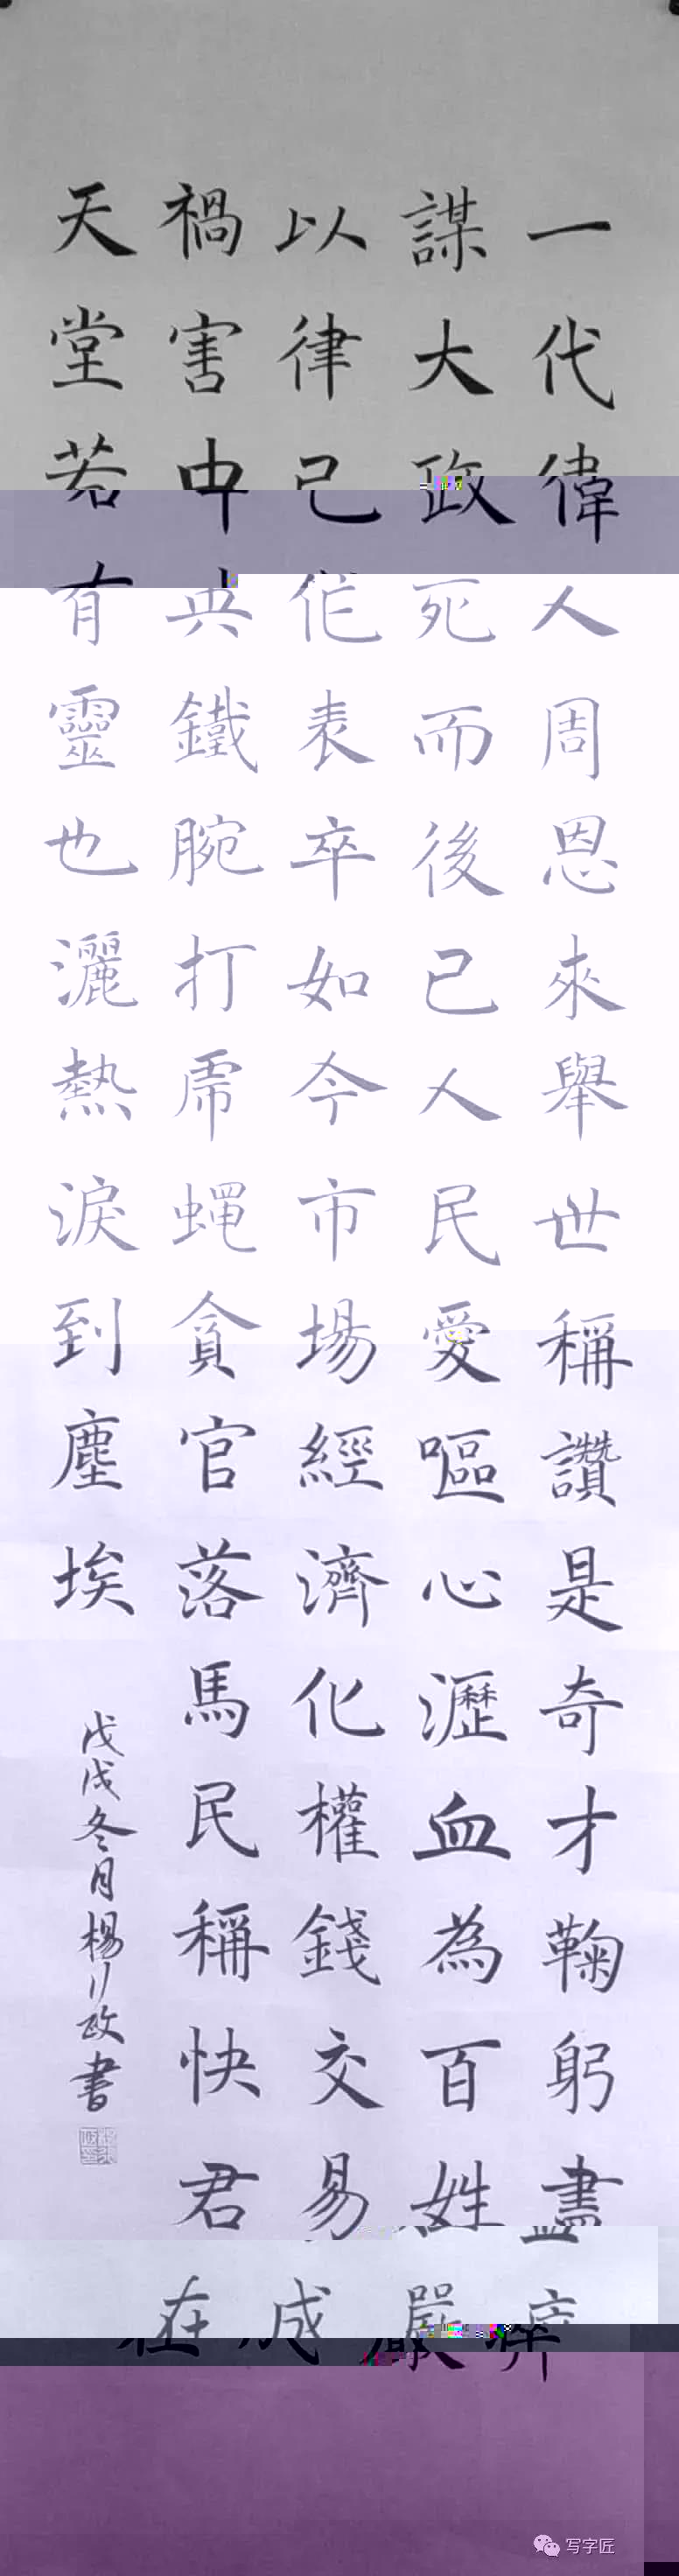 一代偉人周恩來舉世稱讚是奇才鞠躬盡瘁
謀大政死而後已人民愛嘔心瀝血為百姓嚴
以律己作表卒如今市場經濟化權錢交易成
禍害中央鐵腕打虎蝇貪官落馬民稱快君在
天堂若有靈也灑熱淚到塵埃
戊戌冬月楊川政書
写字匠